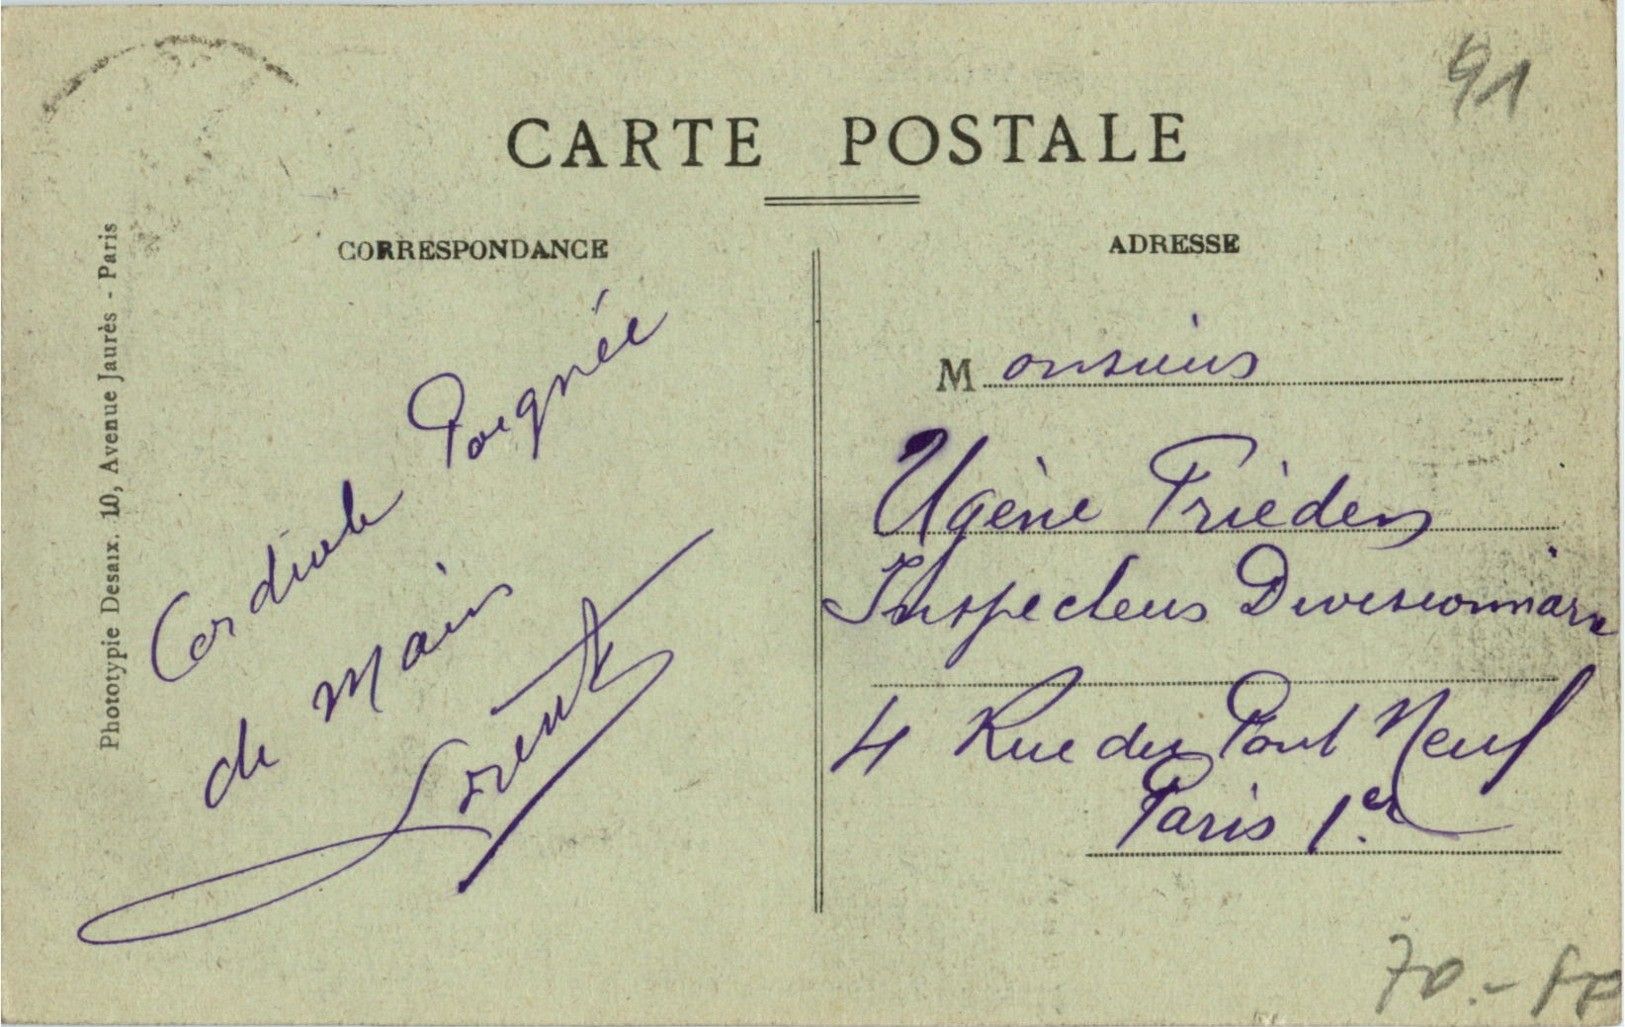 91
CARTE POSTALE
CORRESPONDANCE
Cordiale Poignée
de Main
ADRESSE
Monsieur
Ugène Frieden
Inspecteur Divisionnaire
4 Rue du Pont Neuf
Paris 1er
Phototypie Desaix. 10, Avenue Jaurès - Paris
70.-